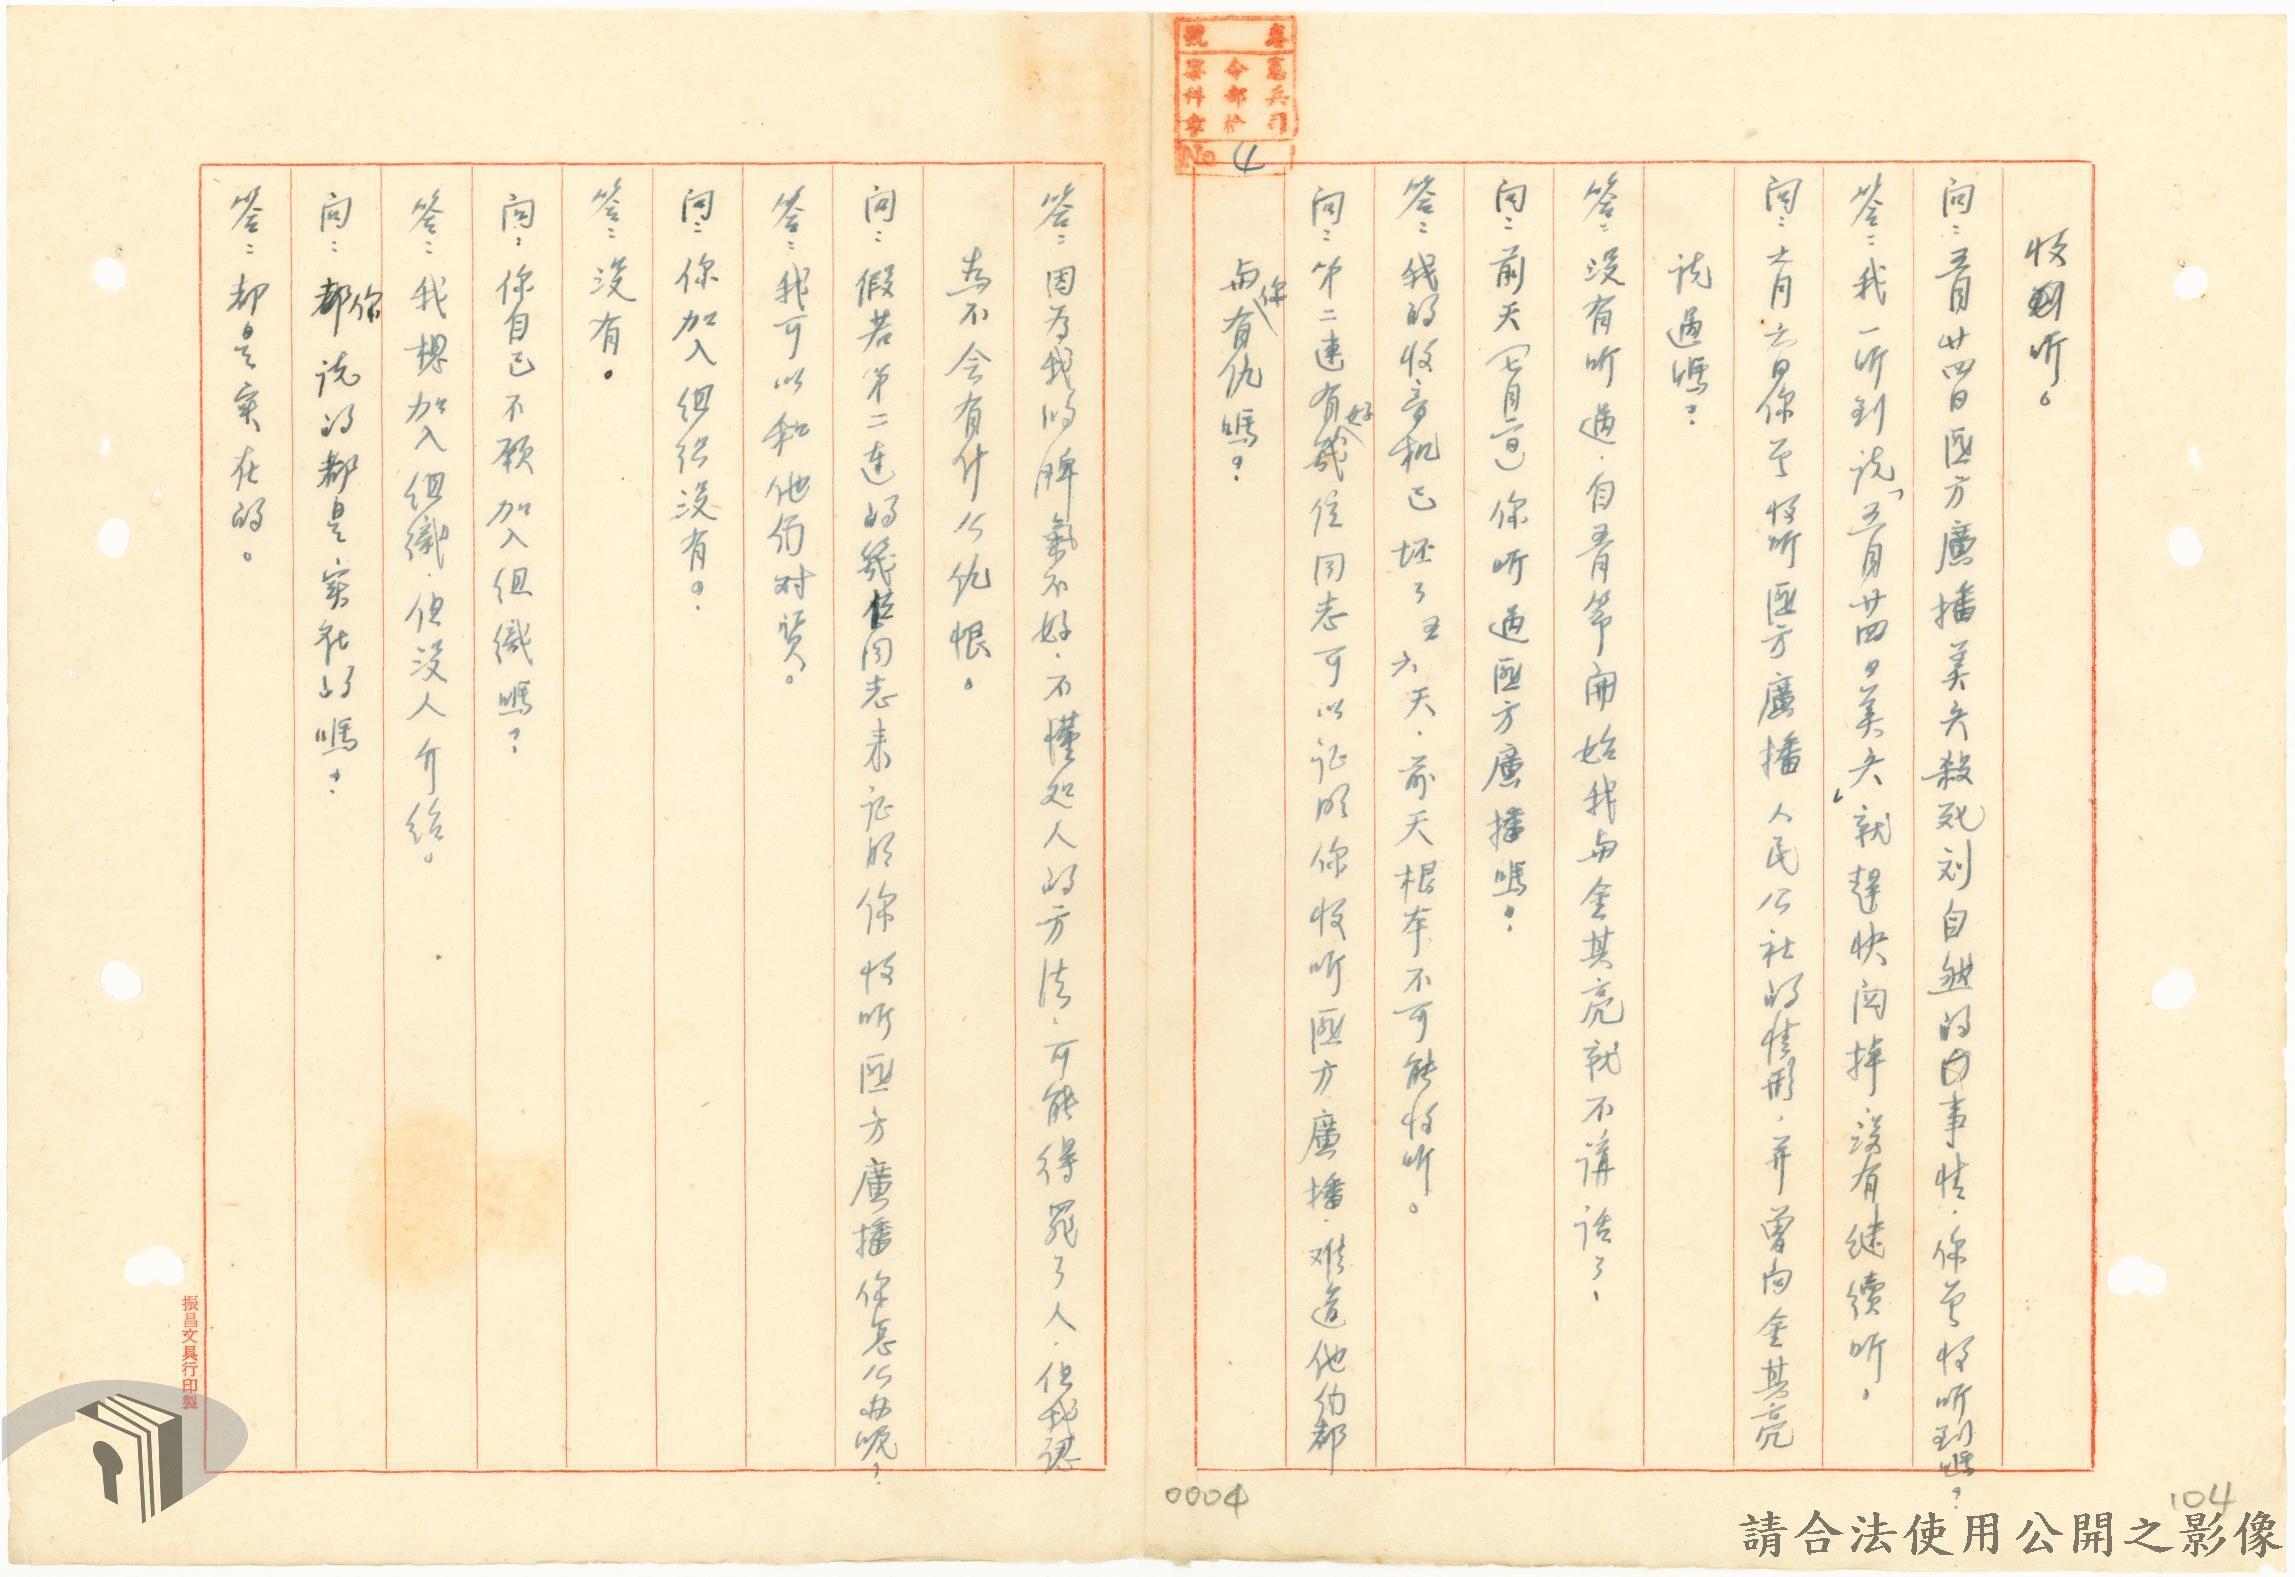 收听。
问：五月廿四日匪方廣播美兵殺死刘自然的事情，你曾收听到嗎？
答：我一听到说「五月廿四日美兵」就趕快関掉没有继續听。
问：六月六日你曾收听匪方廣播人民公社的情形，并曾向金其亮
说過嗎？
答：没有听過，自五月節開始我与金其亮就不講话了。
问：前天（七月一日）你听過匪方廣播嗎？
答：我的收音机已坯了五六天，前天根本不可能收听。
问：第二連有好幾位同志可以证明你收听匪方廣播，难道他们都
与你有仇嗎？
答：因为我的脾氣不好，不懂処人的方法，可能得罪了人，但我認
為不会有什么仇恨。
问：假若第二连的幾位同志来证明你收听匪方廣播你怎么办呢？
答：我可以和他们对质。
问：你加入组织没有？
答：没有。
问：你自己不願加入组織嗎？
答：我想加入组織，但没人介绍。
问：你说的都是实在的嗎？
答：都是实在的。
憲兵司
令部檢
察科章
No 4
振昌文具行印製
0004
104
請合法使用公開之影像